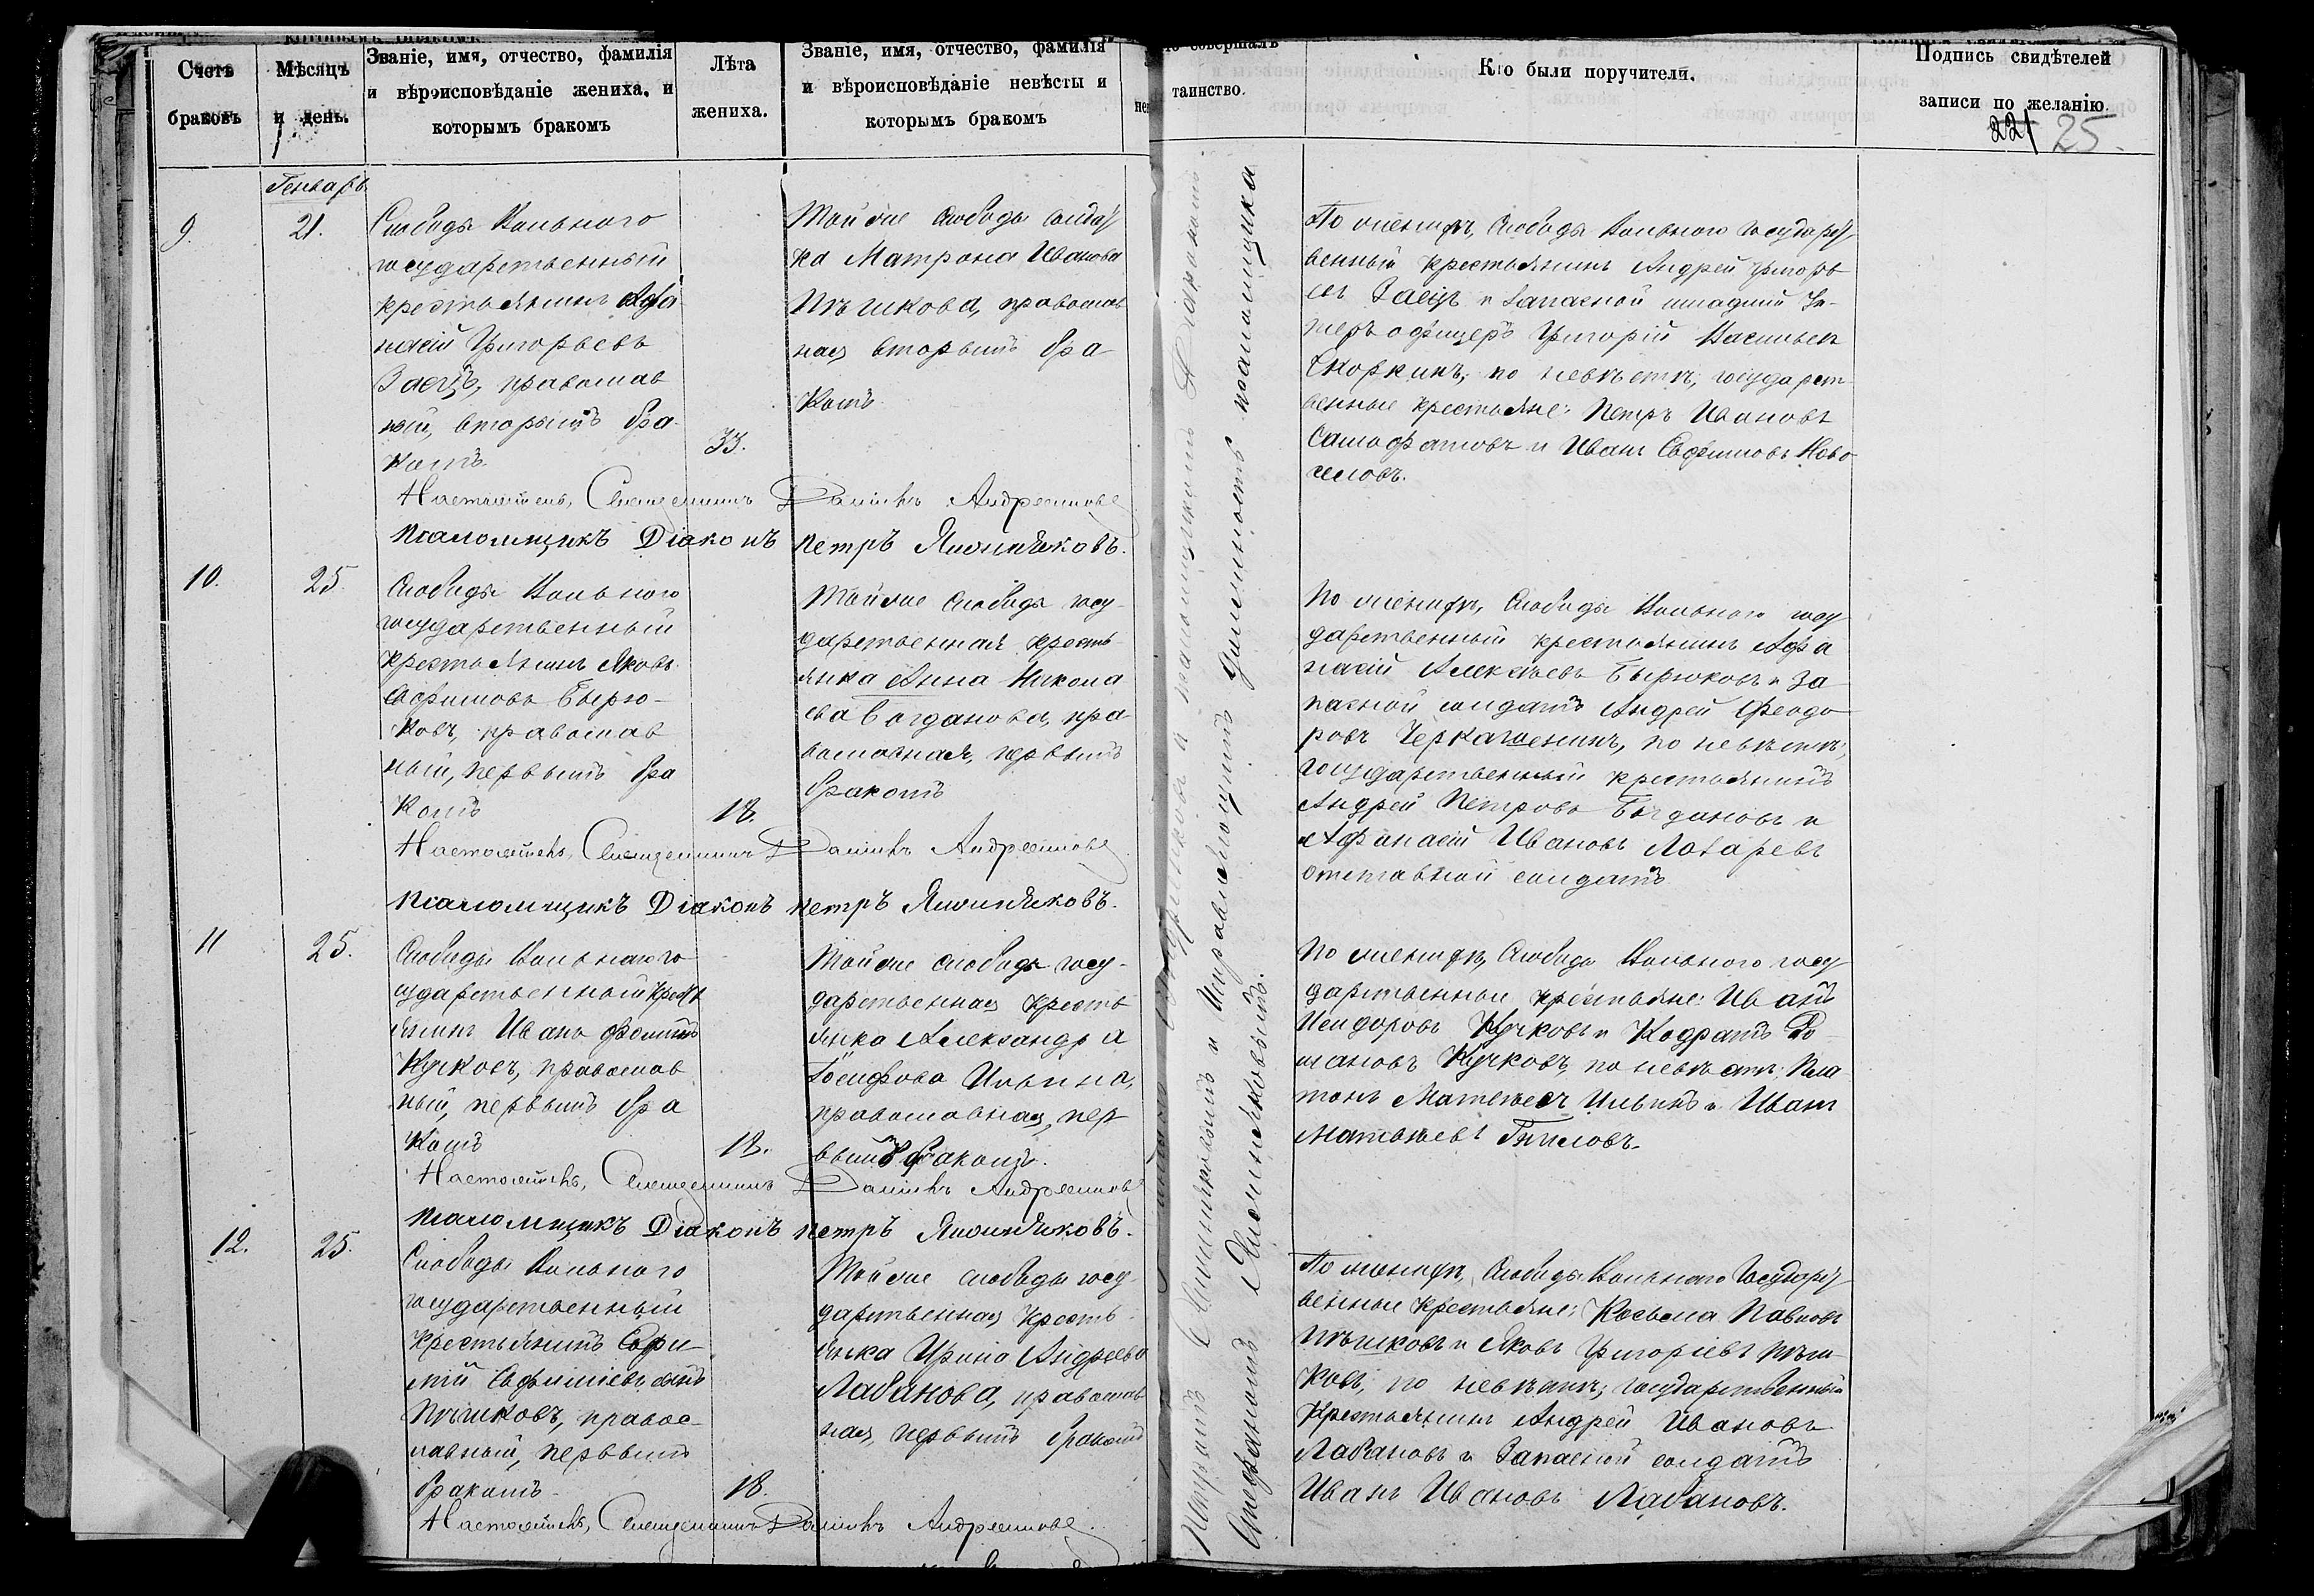 Счетъ
браковъ
Мѣсяцъ
и день.
Званіе, имя, отчество, фамилія
и вѣроисповѣданіе жениха, и
которымъ бракомъ
Лѣта
жениха.
Званіе, имя, отчество, фамилія
и вѣроисповѣданіе невѣсты и
которымъ бракомъ
совершалъ
таинство.
Кто были поручители.
Подпись свидѣтелей
записи по желанію.
221 25.
Генварь
9.
21.
Слободы Вольного
государственный
крестьянинъ Афа
насій Григорьевъ
Заецъ, православ
ный, вторымъ бра
комъ
33.
Той же слободы солдат
ка Матрона Иванова
Пѣшкова, православ
ная вторымъ бра
комъ
По женихѣ, Слободы Вольного государст
венный крестьянинъ Андрей Григорь
евъ Заецъ и запасной младшій Ун-
теръ офицеръ Григорій Васильев
Скоркинъ; по невѣстѣ, государст
венные крестьяне: Петръ Ивановъ
и Иванъ Ефимовъ Ново
селовъ.
Настоятель, Священникъ Даніилъ
Псаломщикъ Діаконъ Петръ
10.
25
Слободы Вольного
государственный
крестьянинъ Яковъ
Ефимовъ Бирю-
ковъ, православ
ный, первымъ бра
комъ
18.
Той же слободы госу-
дарственная кресть
янка Анна Никола
ева Богданова, пра
вославная, первымъ
бракомъ
По женихѣ, Слободы Вольного госу
дарственный крестьянинъ Афа
насій Алексѣевъ Бирюковъ и за
пасной солдатъ Андрей Феодо
ровъ Черкашенинъ, по невѣстѣ;
государственный крестьянинъ
Андрей Петровъ Богдановъ и
Афанасій Ивановъ Лазаревъ
отставной солдатъ
Настоятель, Священникъ Даніилъ
Псаломщикъ Діаконъ Петръ
11
25.
Слободы Вольнаго го
сударственный крест
янинъ Иванъ Фоминъ
Кучковъ, православ
ный, первымъ бра
комъ
18.
Той же слободы госу-
дарственная кресть
янка Александра
Іосифова Ильина,
православная, пер
вымъ бракомъ.
По женихѣ, Слободы Вольного госу
дарственные крестьяне: Иванъ
Исидоровъ Кучковъ и Кодратъ Ро-
мановъ Кучковъ, по невѣстѣ: Пла
тонъ Матвѣевъ Ильинъ и Иванъ
Матвѣевъ
Настоятель, Священникъ Даніилъ
Псаломщикъ Діаконъ Петръ
12.
25.
Слободы Вольного
государственный
крестьянинъ
Пѣшковъ, правос-
лавный, первымъ
бракомъ
18.
Той же слободы госу-
дарственная кресть
янка Ирина Андреева
Лабанова, православ
ная, первымъ бракомъ
По женихѣ, Слободы Вольнаго Государст
венные крестьяне: Косьма Павловъ
Пѣшковъ и Яковъ Григоріевъ Пѣш
ковъ, по невѣстѣ; государственный
крестьянинъ Андрей Ивановъ
Лабановъ и Запасной солдатъ
Иванъ Ивановъ Лабановъ.
Настоятель, Священникъ Даніилъ
и Исправляющимъ должность псаломщика
Стефаномъ